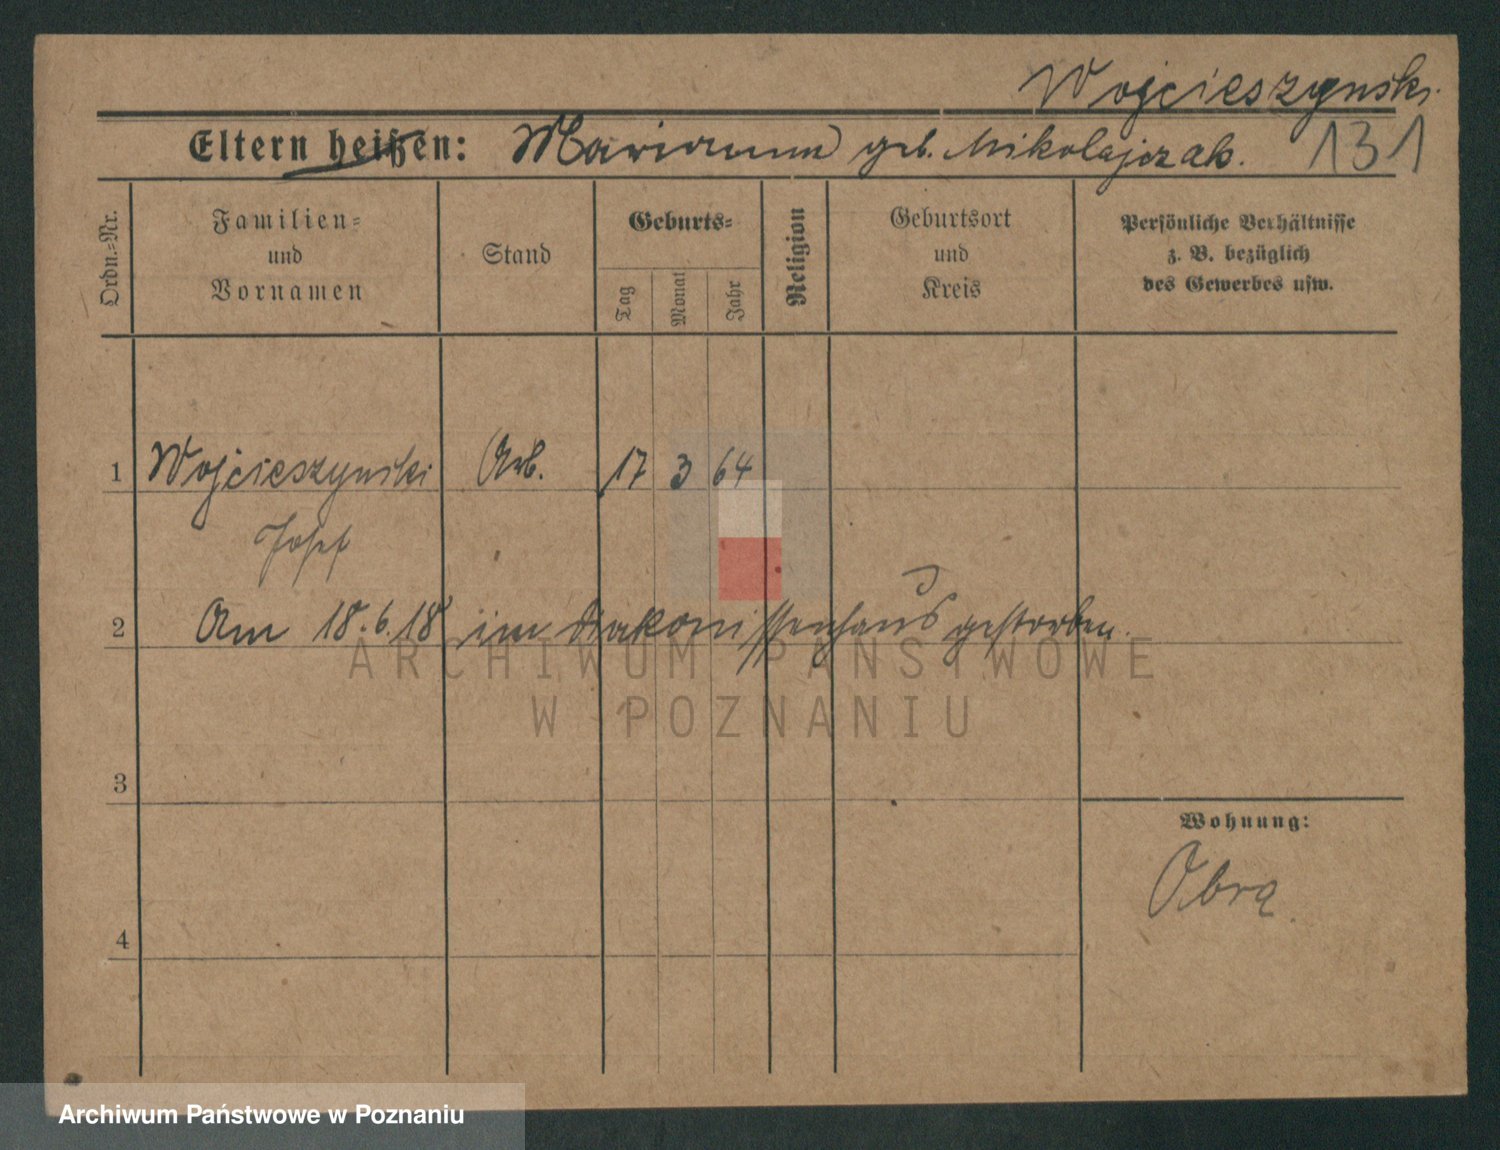 Wojcieszynski.
Eltern heißen: Marianna geb. Mikolajczak. 131
Ordn.-Nr.
Familien-
und
Vornamen
Stand
Geburts-
Tag
Monat
Jahr
Religion
Geburtsort
und
Kreis
Persönliche Verhältnisse
z. B. bezüglich
des Gewerbes usw.
1 Wojcieszynski Arb. 17 3 64
Josef
2 Am 18.6.18 im Diakonissenhaus gestorben.
ARCHIWUM PAŃSTWOWE
W POZNANIU
3
Wohnung:
Obra.
4
Archiwum Państwowe w Poznaniu